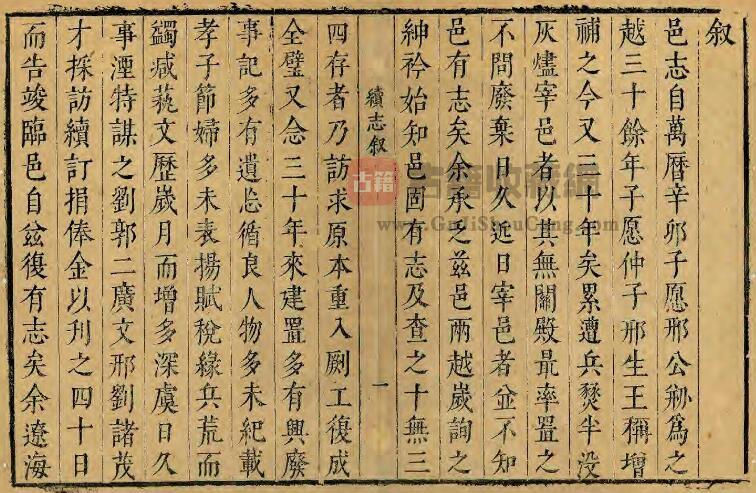 叙
邑志自萬曆辛卯子愿邢公刱爲之
越三十餘年子愿仲子邢生王稱增
補之今又三十年矣累遭兵燹半没
灰燼宰邑者以其無關殿最率置之
不問廢棄日久近日宰邑者並不知
邑有志矣余承乏兹邑兩越歲詢之
紳衿始知邑固有志及查之十無三
續志叙
一
四存者乃訪求原本重入劂工復成
全璧又念三十年來建置多有興廢
事記多有遺忘循良人物多未紀載
孝子節婦多未表揚賦稅緣兵荒而
蠲减藝文歷歲月而增多深虞日久
事湮特謀之劉郭二廣文邢劉諸茂
才採訪續訂捐俸金以刋之四十日
而告竣臨邑自兹復有志矣余遼海
古籍
古籍收藏網
www.GuJiShouCang.com